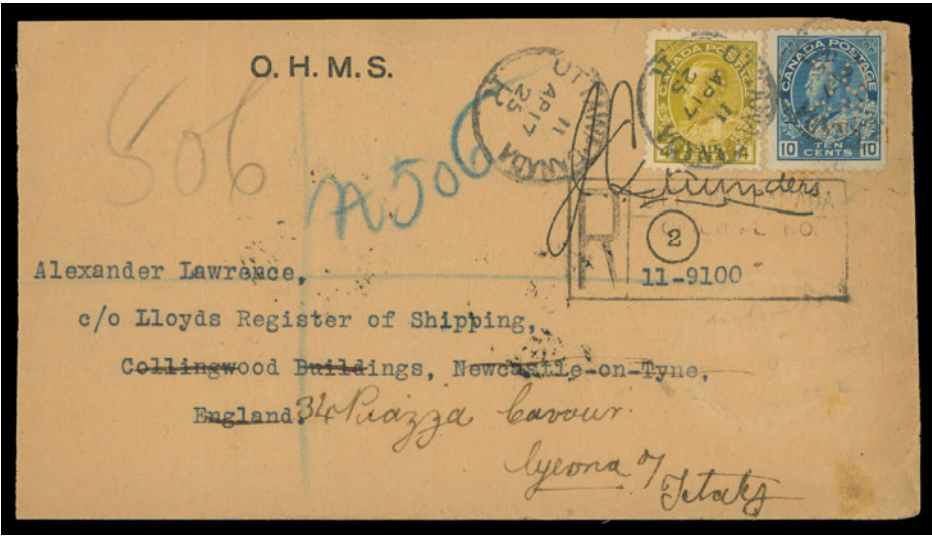 O. H. M. S.
506
A506
OTTAWA CANADA
11
AP 17
25
OTTAWA CANADA
11
AP 17
25
CANADA POSTAGE
CANADA POSTAGE
10 TEN CENTS 10
J C Saunders
R
2
11-9100
Alexander Lawrence,
c/o Lloyds Register of Shipping,
Collingwood Buildings, Newcastle-on-Tyne,
England.
34 Piazza Cavour.
Italy